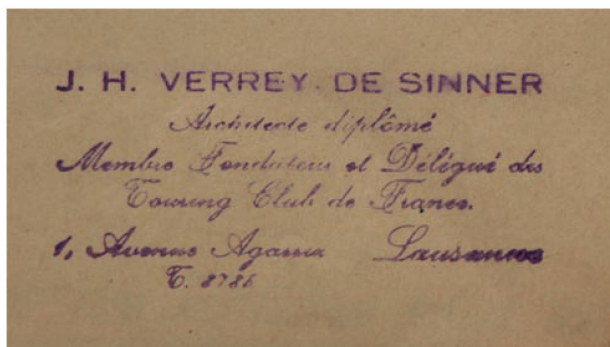 J. H. VERREY. DE SINNER
Architecte diplômé
Membre Fondateur et Délégué des
Touring Club de France.
1, Avenue Agassiz Lausanne
T. 8786